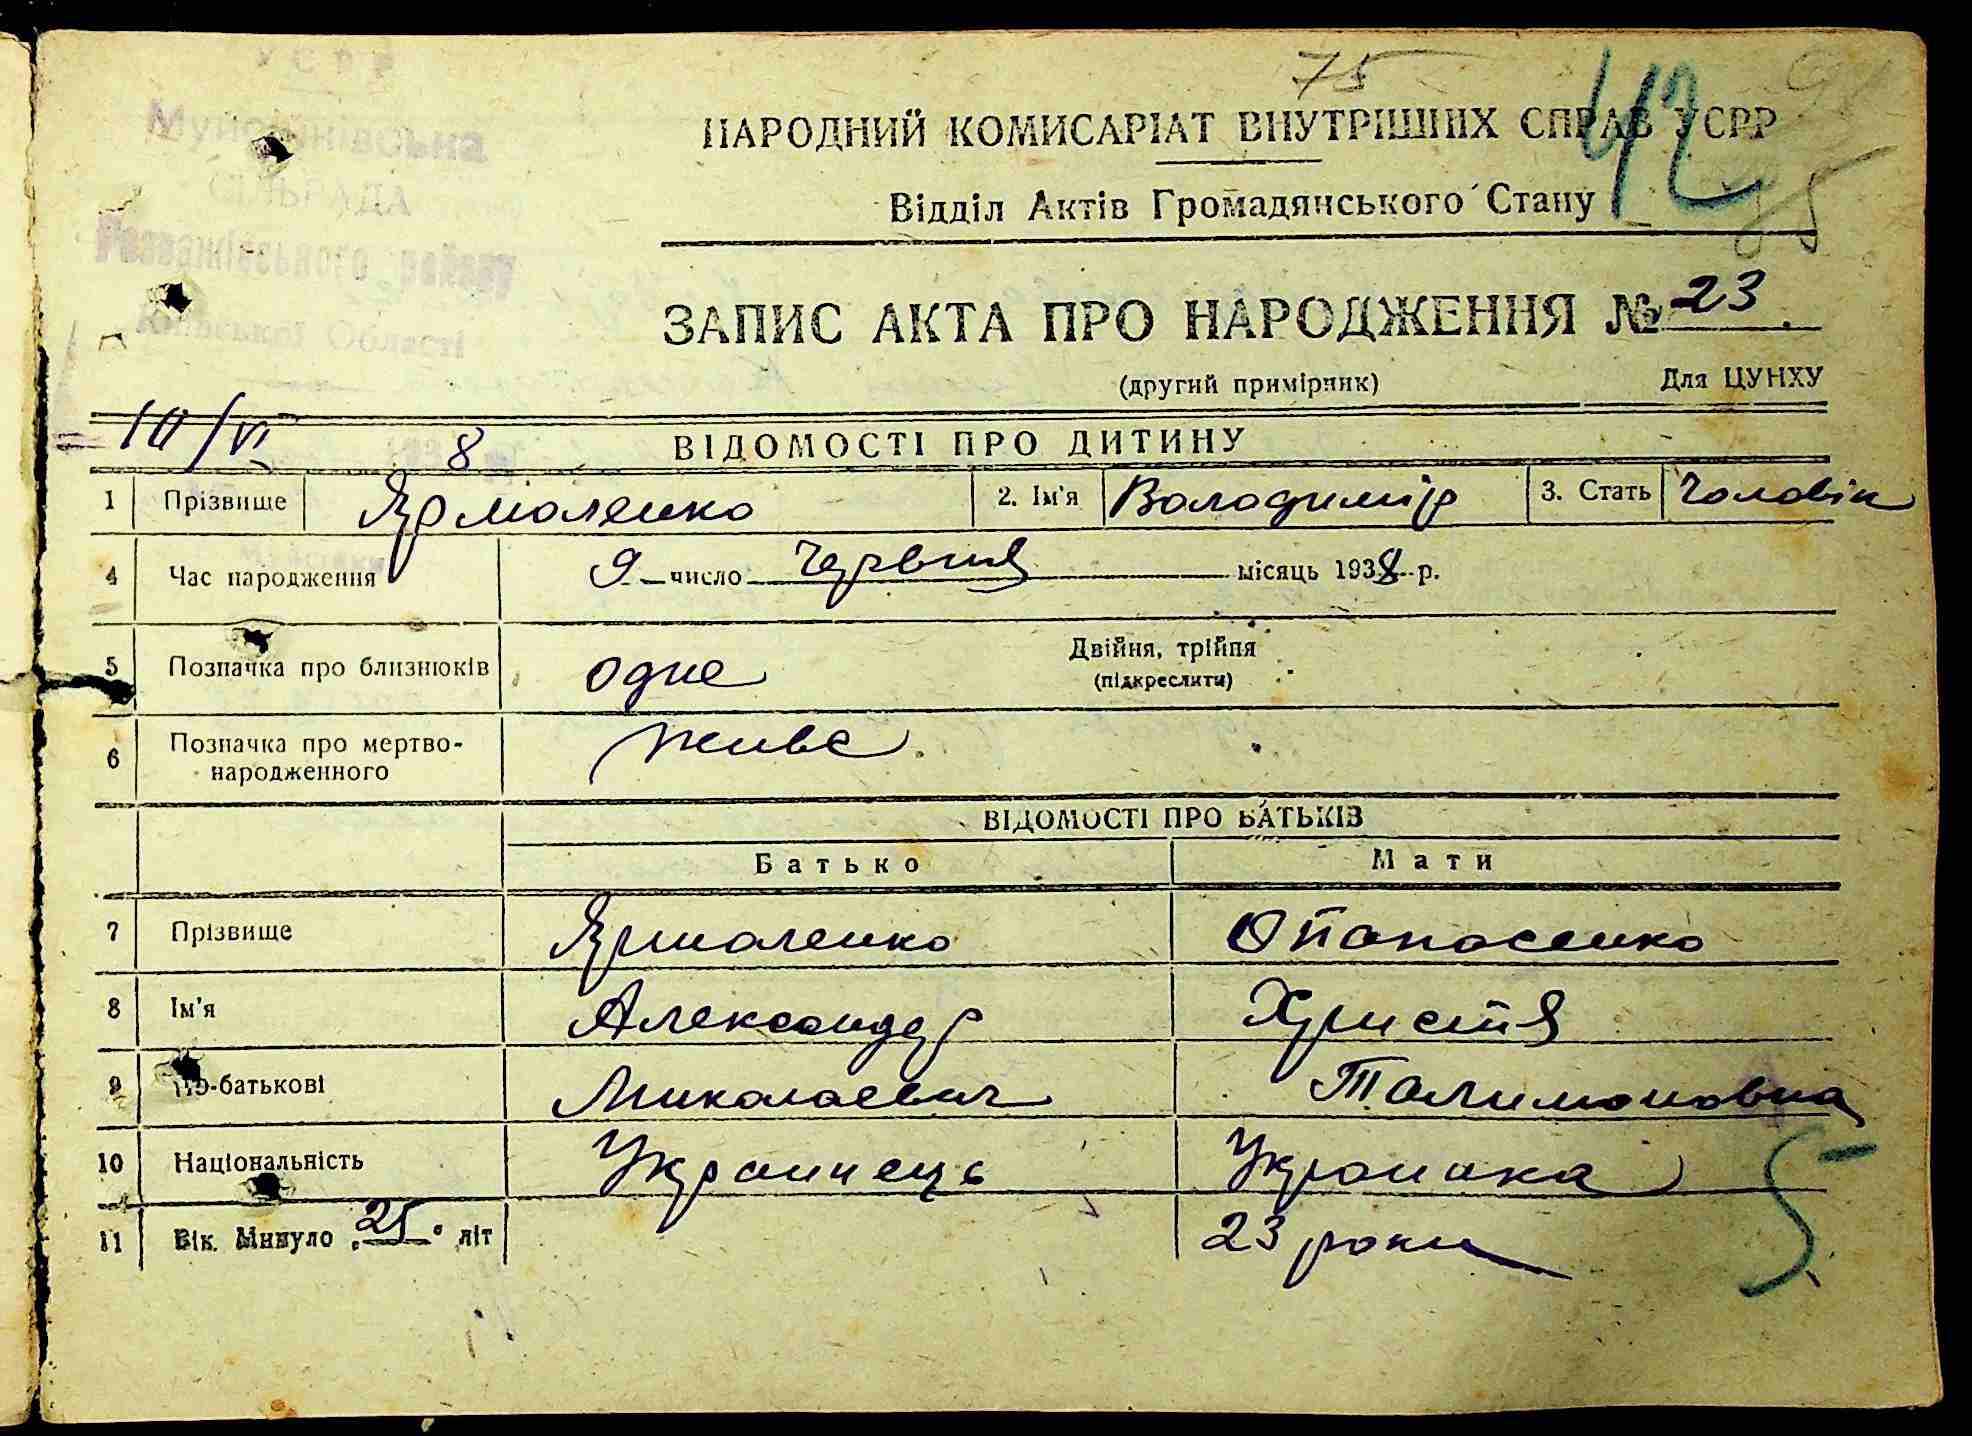 УСРР
75
42
НАРОДНИЙ КОМИСАРІАТ ВНУТРІШНІХ СПРАВ УСРР
Відділ Актів Громадянського Стану
СІЛЬРАДА
Розважівського району
Київської Області
ЗАПИС АКТА ПРО НАРОДЖЕННЯ № 23
(другий примірник) Для ЦУНХУ
10/VI 8
ВІДОМОСТІ ПРО ДИТИНУ
1 Прізвище Ярмоленко 2. Ім'я Володимір 3. Стать Чоловік
4 Час народження 9 число Червня місяць 1938 р.
5 Позначка про близнюків одне Двійня, трійня
(підкреслити)
6 Позначка про мертво-
народженного живе
ВІДОМОСТІ ПРО БАТЬКІВ
Батько Мати
7 Прізвище Ярмоленко Опанасенко
8 Ім'я Александер Христя
9 По-батькові Миколаевич Талимоновна
10 Національність Украинець Украинка
11 Вік. Минуло 25 літ 23 роки
5